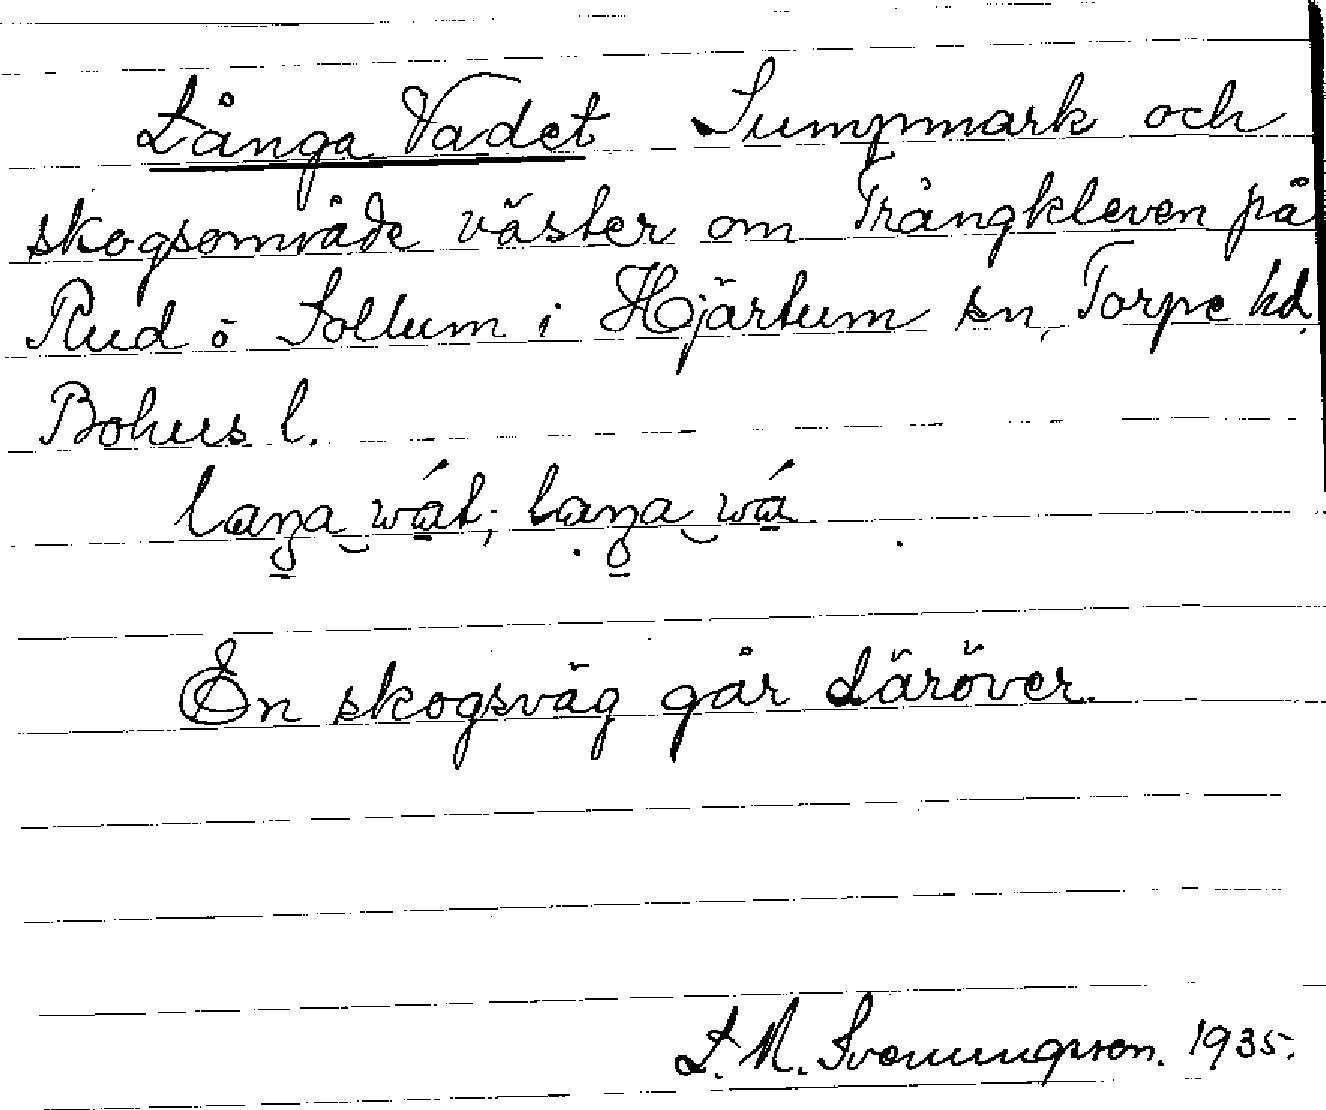 Långa Vadet Sumpmark och
skogsområde väster om Trångkleven på
Rud ö Sollum i Hjärtum sn, Torpe hd.
Bohus l.
En skogsväg går däröver.
L. M. Svenungsson. 1935.